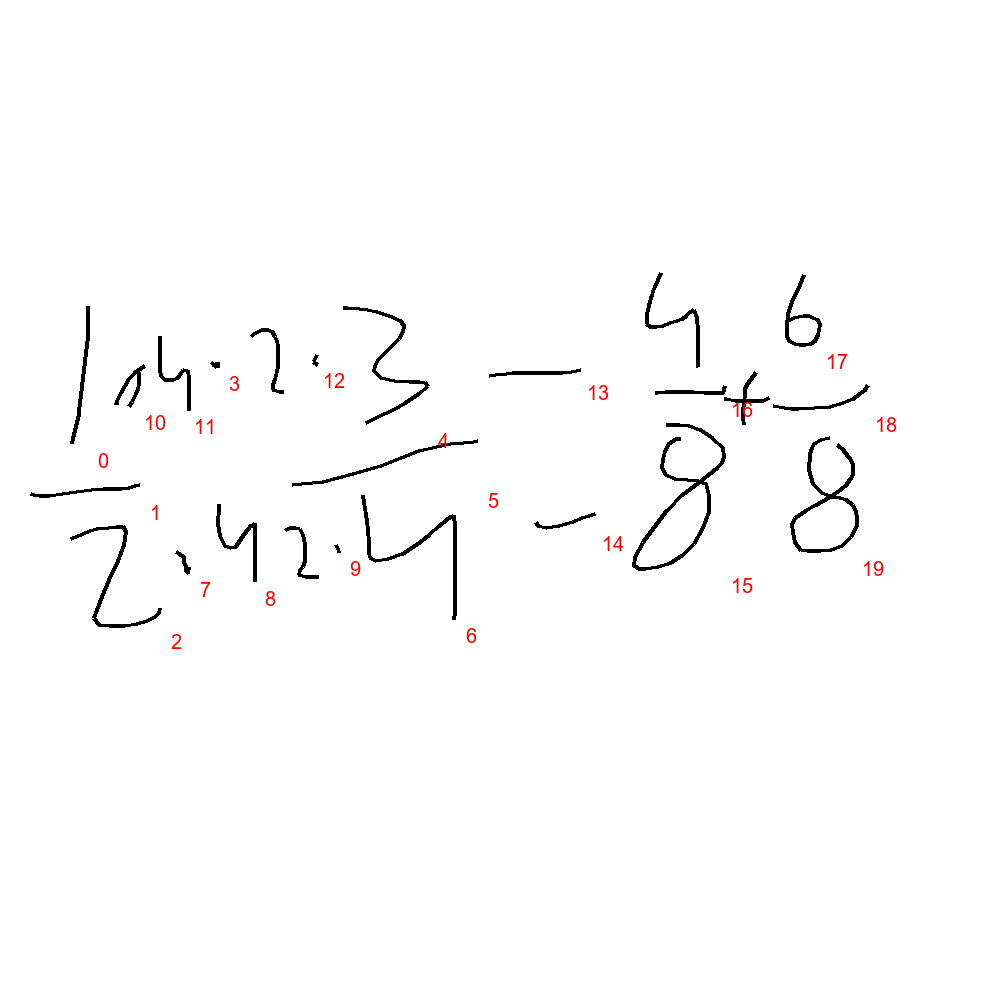 1 · 4 · 2 · 3 — 4/8 + 6/8
2 · 4 2 · 4 —
0 1 2 3 4 5 6 7 8 9 10 11 12 13 14 15 16 17 18 19